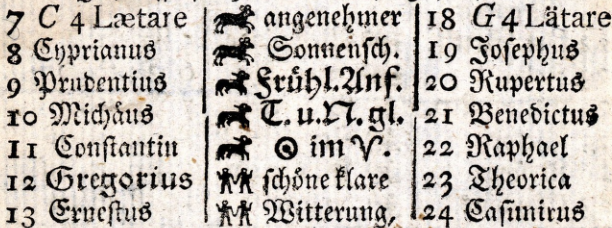 7 C 4 Lætare angenehmer 18 G 4 Lätare
8 Cyprianus Sonnensch. 19 Josephus
9 Prudentius Frühl. Anf. 20 Rupertus
10 Michäus T. u. N. gl. 21 Benedictus
11 Constantin ☉ im ♈. 22 Raphael
12 Gregorius schöne klare 23 Theorica
13 Ernestus Witterung, 24 Casimirus